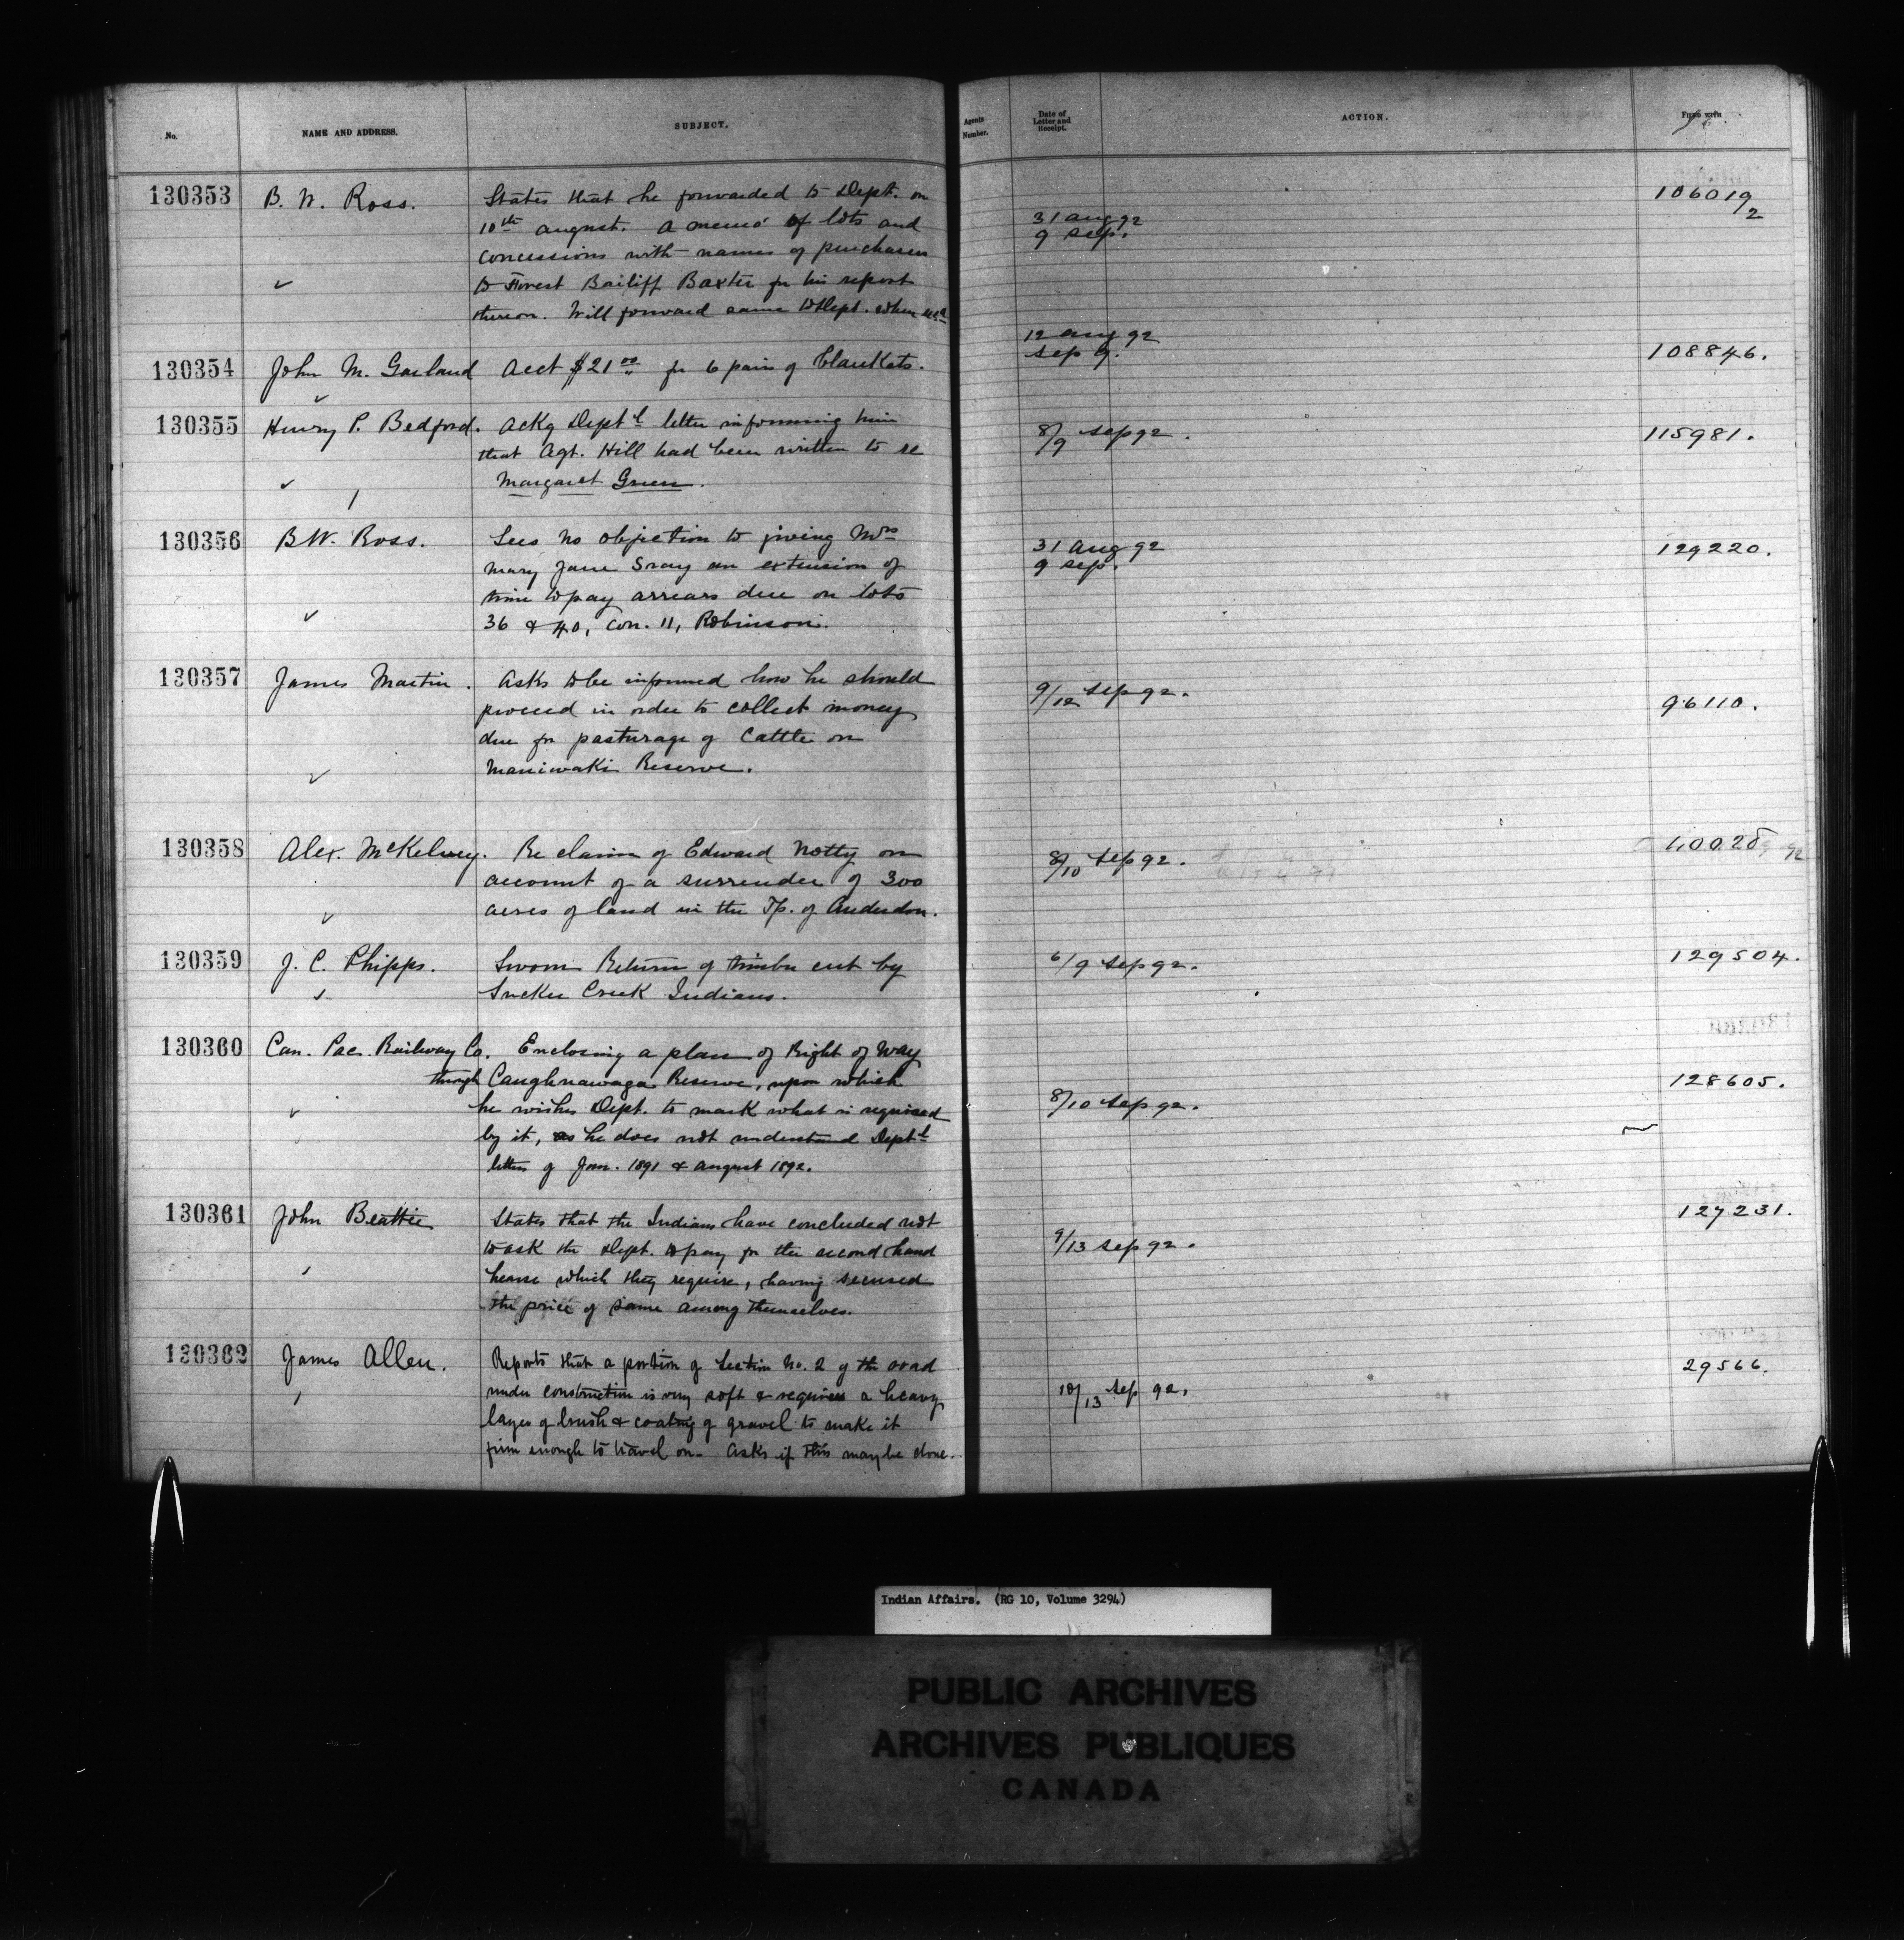 No.
NAME AND ADDRESS.
SUBJECT.
Agents Number.
Date of Letter and Receipt.
ACTION.
FILED WITH
130353
B. W. Ross.
States that he forwarded to Dept. on
10th august. a memo of lots and
concessions with names of purchasers
to Forest Bailiff Baxter for his report
thereon. Will forward same to Dept. when
31 aug 92
9 sep.
106019/2
130354
John M. Garland
Acct $21 00 for 6 pairs of blankets.
12 aug 92
sep 9.
108846.
130355
Henry P. Bedford.
Ackg Dept'l letter informing him
that Agt. Hill had been written to re
Margaret Green.
8/9 sep 92.
115981.
130356
B.W. Ross.
Sees no objection to giving Mrs
Mary Jane Sray an extension of
time to pay arrears due on lots
36 & 40, Con. 11, Robinson.
31 Aug 92
9 sep.
129220.
130357
James Martin.
Asks to be informed how he should
proceed in order to collect money
due for pasturage of Cattle on
Maniwaki Reserve.
9/12 sep 92.
96110.
130358
Alex. McKelvey.
Re claim of Edward Notty on
account of a surrender of 300
acres of land in the Tp. of Anderdon.
8/10 sep 92.
130359
J. C. Phipps.
Sworn Return of timber cut by
Sucker Creek Indians.
6/9 sep 92.
129504.
130360
Can. Pac. Railway Co.
Enclosing a plan of Right of Way
through Caughnawaga Reserve, upon which
he wishes Dept. to mark what is required
by it, as he does not understand Dept'l
letters of Jan. 1891 & August 1892.
8/10 sep 92.
128605.
130361
John Beattie
States that the Indians have concluded not
to ask the Dept. to pay for the second hand
hearse which they require, having secured
the price of same among themselves.
9/13 sep 92.
127231.
130362
James Allen.
Reports that a portion of Section No. 2 of the road
under construction is very soft & requires a heavy
layer of brush & coating of gravel to make it
firm enough to travel on. Asks if this may be done.
10/13 sep 92.
29566.
Indian Affairs. (RG 10, Volume 3294)
PUBLIC ARCHIVES
ARCHIVES PUBLIQUES
CANADA